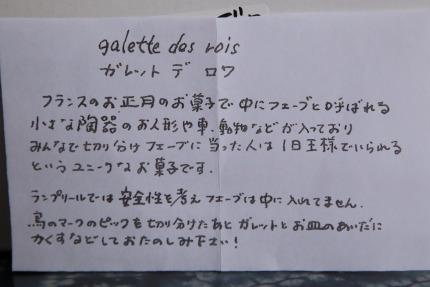 galette des rois
ガレット デ ロワ
フランスのお正月のお菓子で中にフェーブと呼ばれる
小さな陶器のお人形や車、動物などが入っており
みんなで切り分けフェーブに当った人は1日王様でいられる
というユニークなお菓子です.
ランプリールでは安全性を考えフェーブは中に入れてません.
鳥のマークのピックを切り分けたあとガレットとお皿のあいだに
かくすなどしておたのしみ下さい!